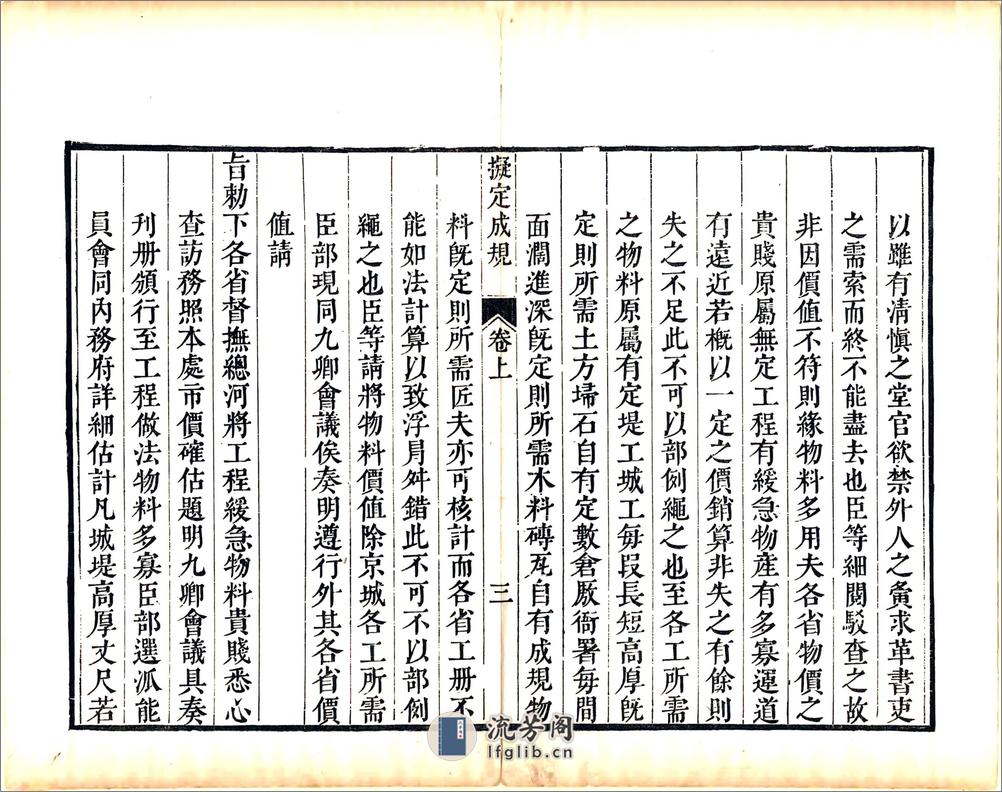 以雖有清慎之堂官欲禁外人之夤求革書吏
之需索而終不能盡去也臣等細閱駁查之故
非因價值不符則緣物料多用夫各省物價之
貴賤原屬無定工程有緩急物產有多寡運道
有遠近若概以一定之價銷算非失之有餘則
失之不足此不可以部例繩之也至各工所需
之物料原屬有定堤工城工每段長短高厚既
定則所需土方埽石自有定數倉厫衙署每間
面濶進深既定則所需木料磚瓦自有成規物
擬定成規 卷上 三
料既定則所需匠夫亦可核計而各省工册不
能如法計算以致浮冐舛錯此不可不以部例
繩之也臣等請將物料價值除京城各工所需
臣部現同九卿會議俟奏明遵行外其各省價
值請
旨勅下各省督撫總河將工程緩急物料貴賤悉心
查訪務照本處市價確估題明九卿會議具奏
刋册頒行至工程做法物料多寡臣部選派能
員會同內務府詳細估計凡城堤高厚丈尺若
流芳阁
lfglib.cn